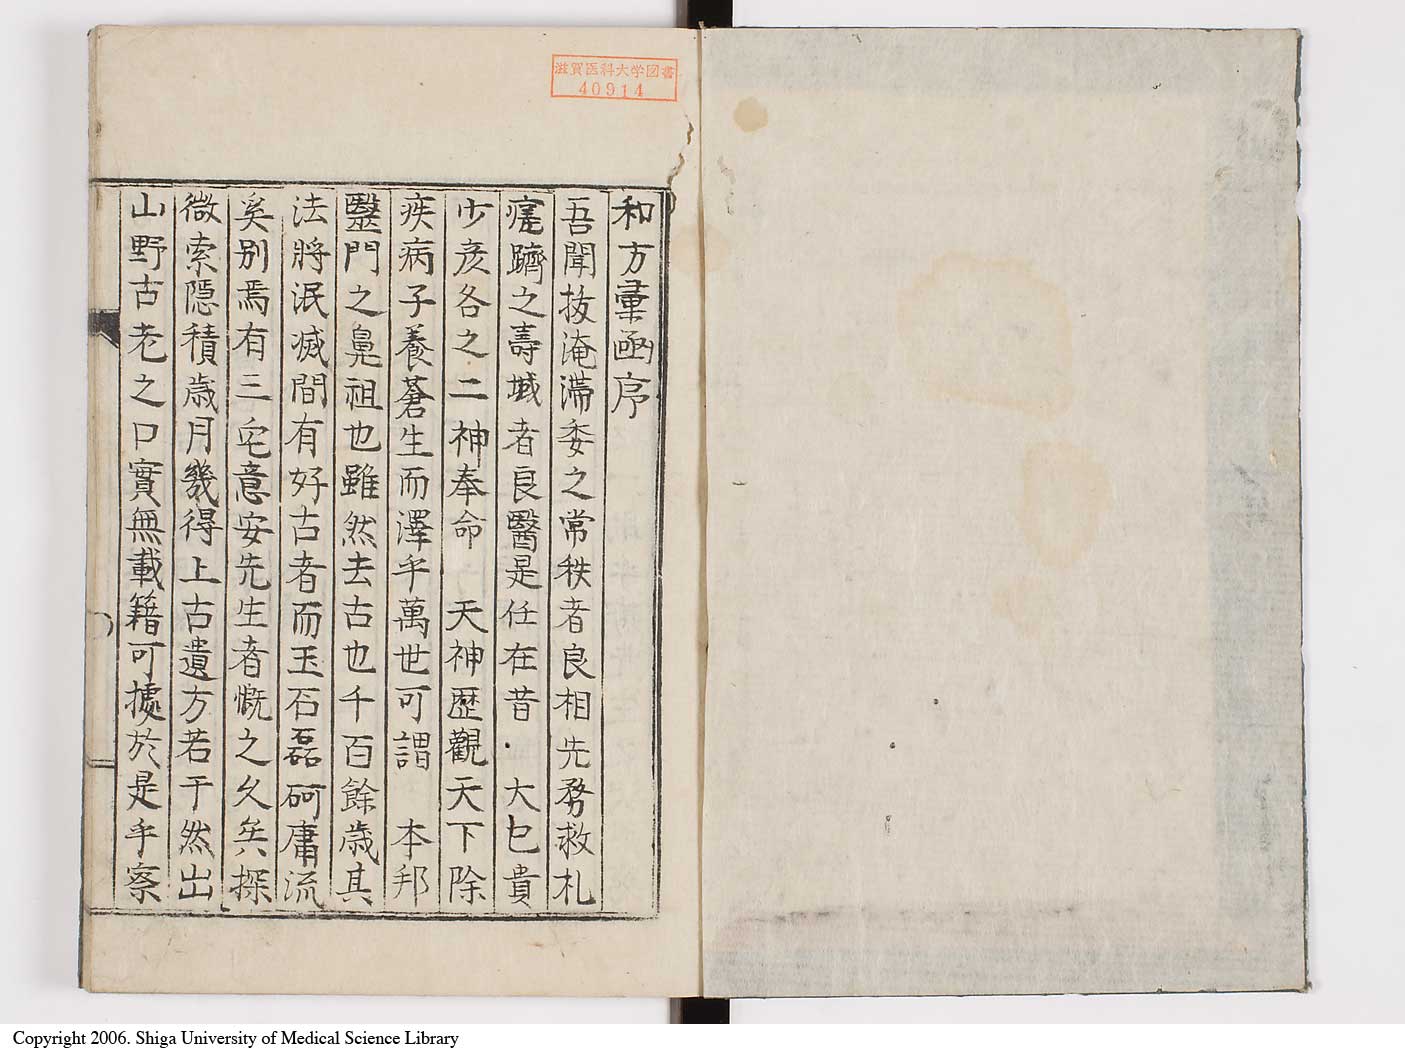 滋賀医科大学図書
40914
和方彙函序
吾聞拔淹滞委之常秩者良相先務救札
瘥躋之壽域者良醫是任在昔大已貴
少彦名之二神奉命天神歴觀天下除
疾病子養蒼生而澤乎萬世可謂本邦
毉門之鼻祖也雖然去古也千百餘歳其
法將泯滅間有好古者而玉石磊砢庸流
奚別焉有三宅意安先生者慨之久矣探
微索隠積歳月幾得上古遺方若干然出
山野古老之口實無載籍可據於是乎察
Copyright 2006. Shiga University of Medical Science Library